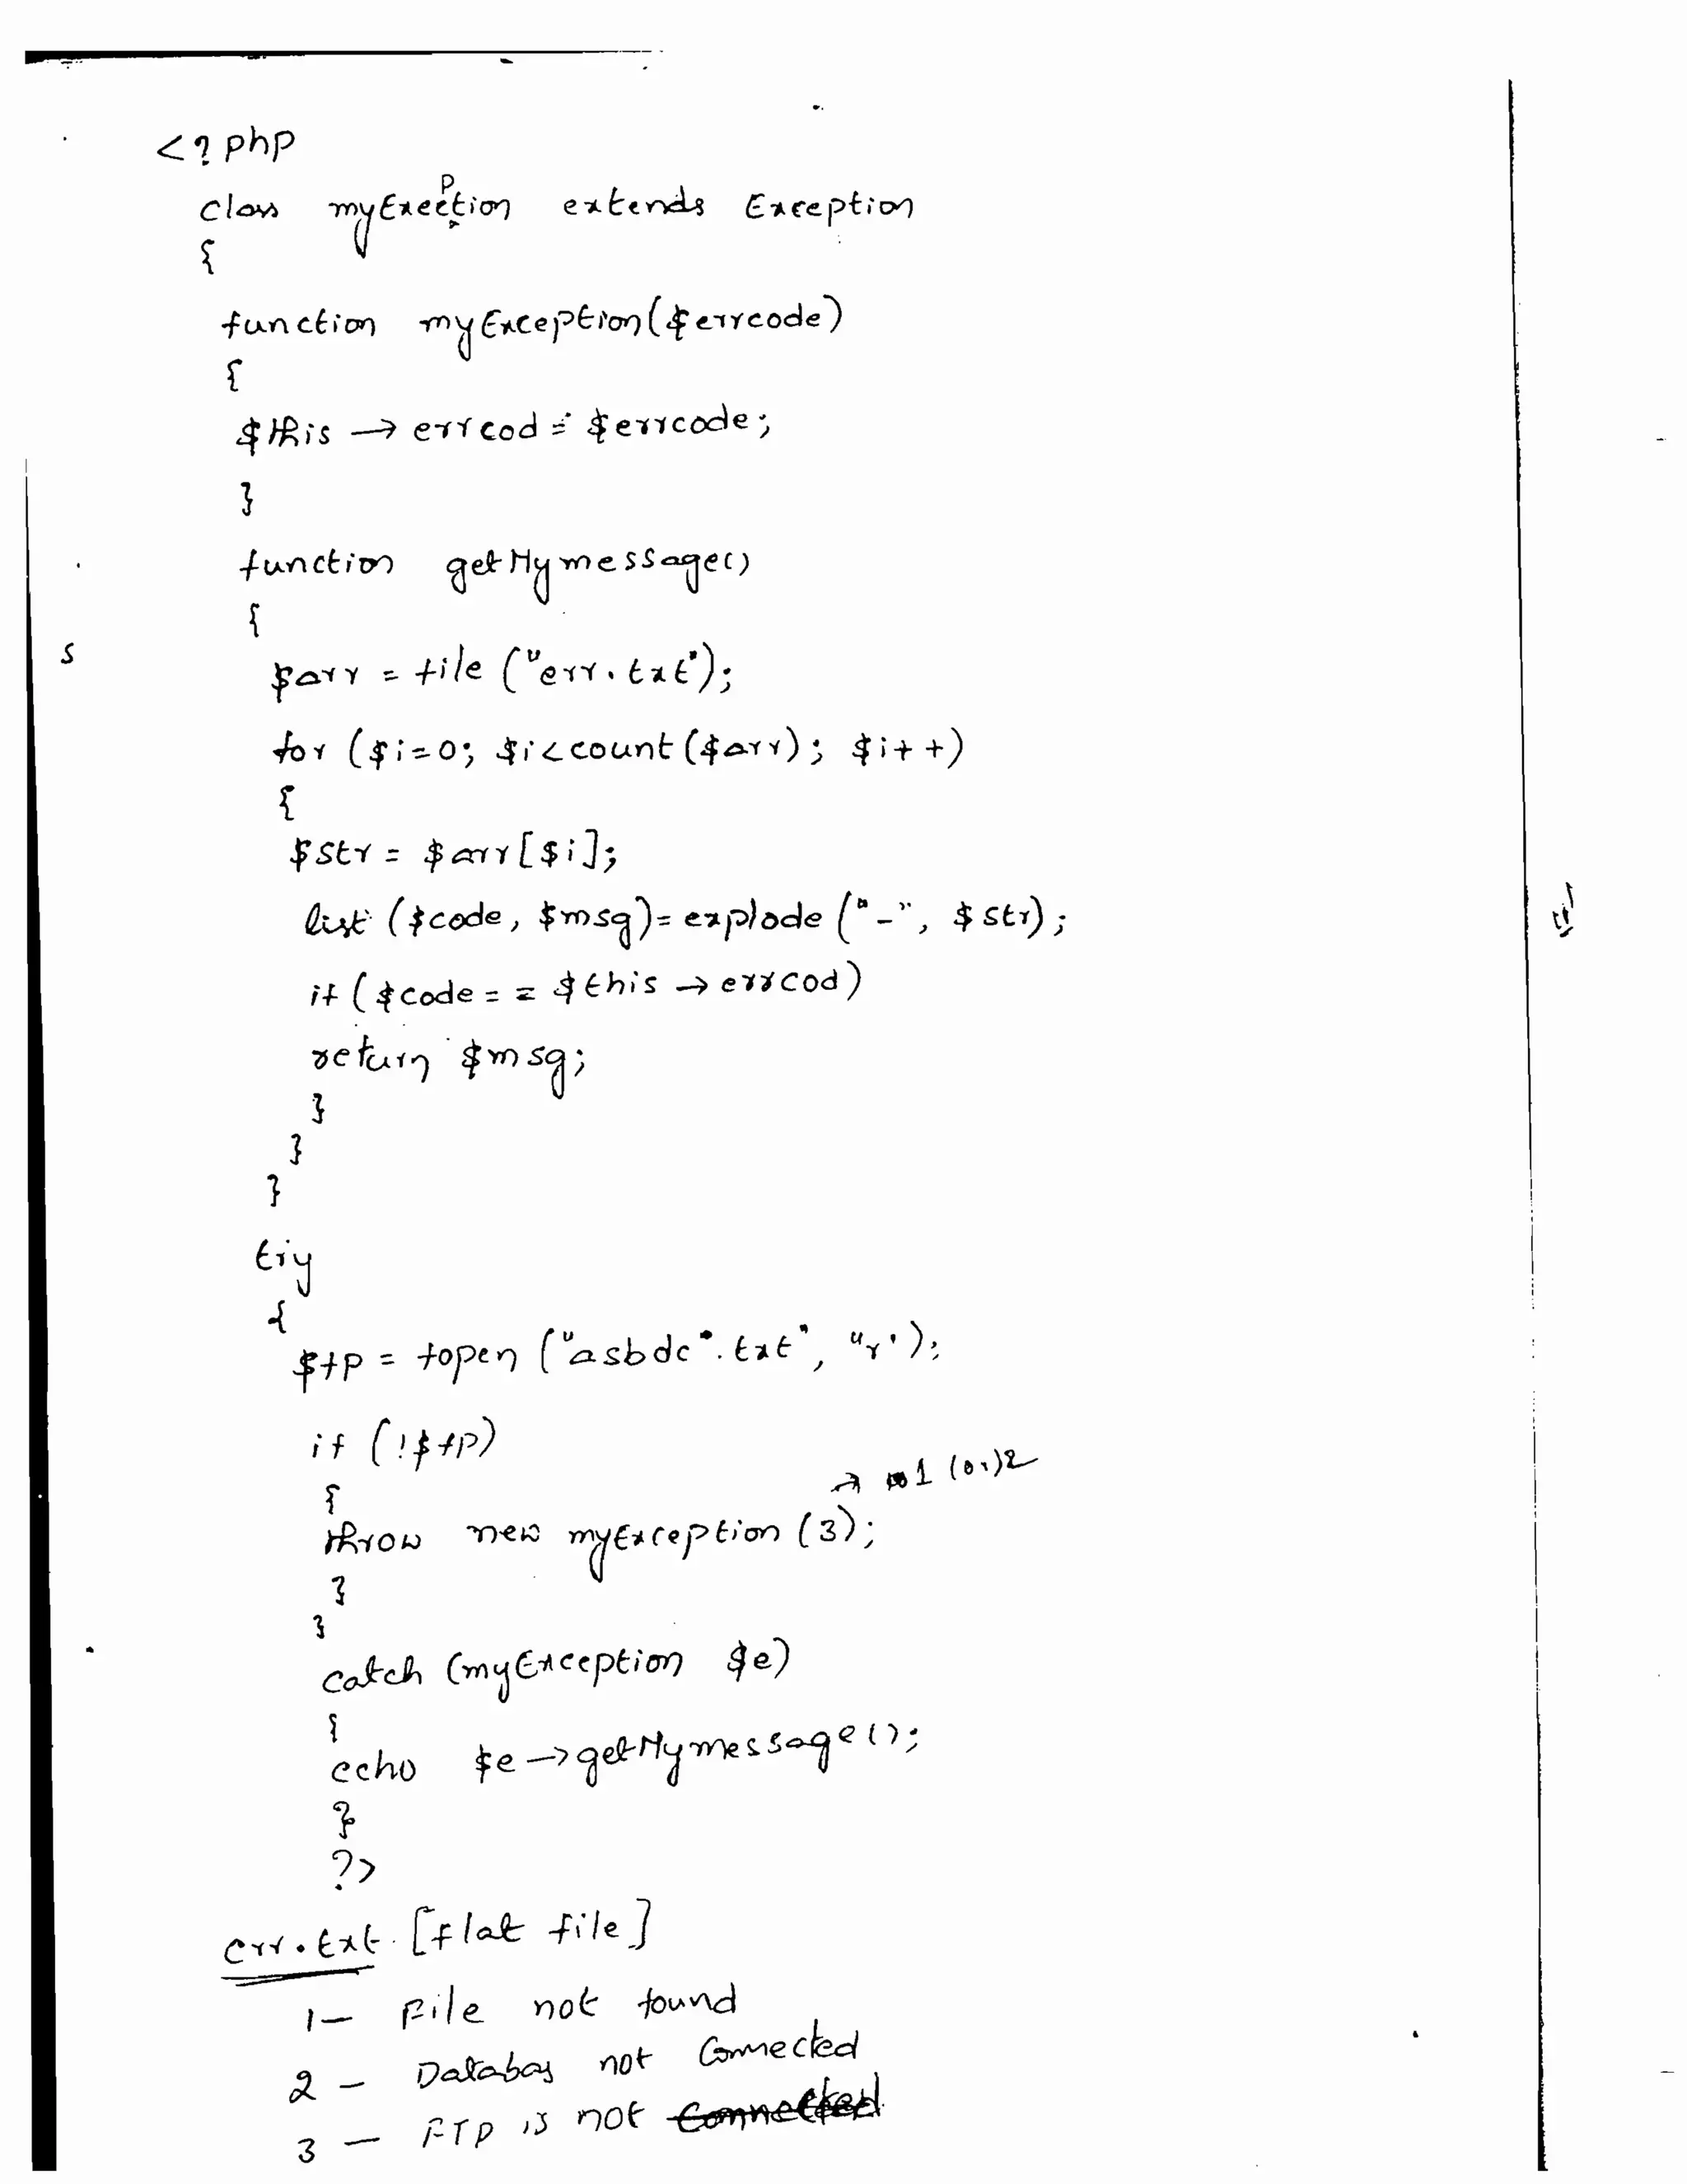 <?php
class myExecption extends Exception
{
function myException($errcode)
{
$this → errcod = $errcode;
}
function getMymessage()
{
$arr = file ("err.txt");
for ($i=0; $i<count($arr); $i++)
{
$str = $arr[$i];
list ($code, $msg)= explode ("-", $str);
if ($code == $this → errcod)
return $msg;
}
}
}
try
{
$fp = fopen ("asbdc".txt", "r");
if (!$fp)
{
→ 1 (or) 2
throw new myException (3);
}
}
catch (myException $e)
{
echo $e → getMymessage();
}
?>
err.txt [flat file]
1 — File not found
2 — Databas not Connected
3 — FTP is not Connected